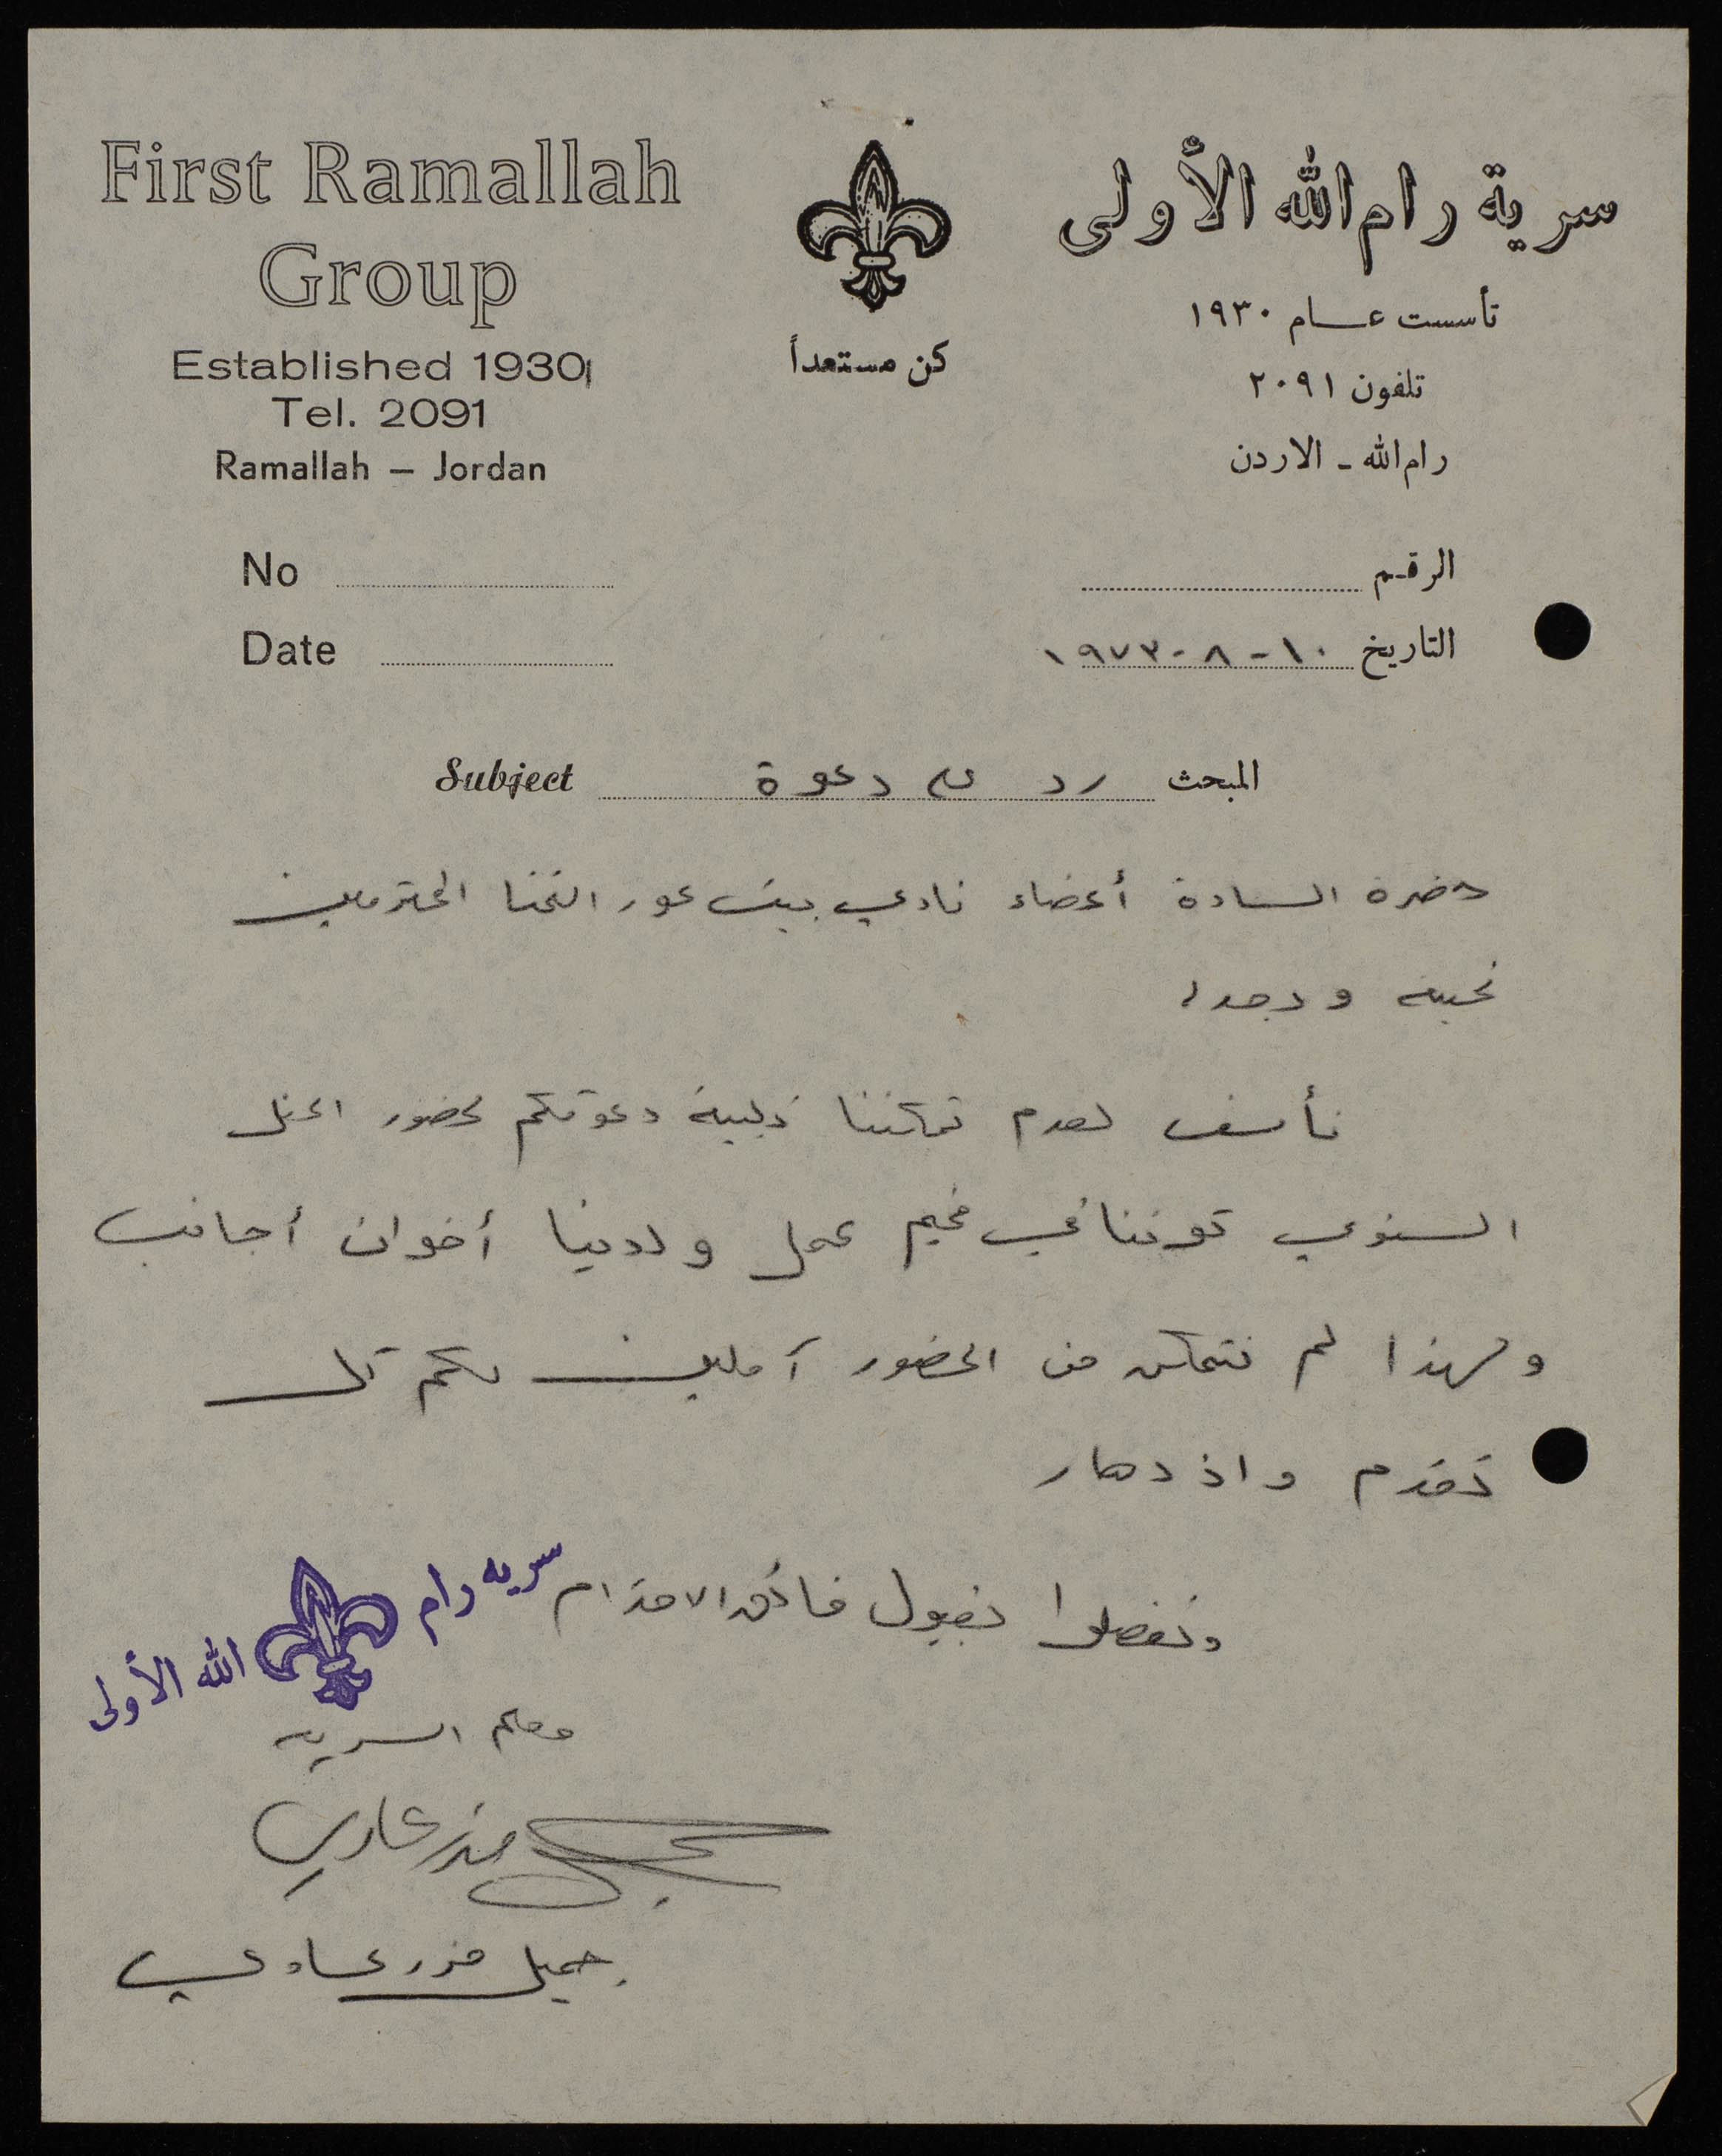 First Ramallah
Group
Established 1930
Tel. 2091
Ramallah – Jordan
سرية رام الله الأولى
تأسست عام ١٩٣٠
تلفون ٢٠٩١
رام الله - الاردن
كن مستعداً
No
Date
الرقم
التاريخ ١٠-٨-١٩٧٣
Subject
المبحث رد على دعوة
حضرة السادة أعضاء نادي بيت عور التحتا المحترمين
تحية وبعد،
نأسف لعدم تمكننا تلبية دعوتكم لحضور الحفل
السنوي كوننا في مخيم عمل ولدينا أخوان أجانب
ولهذا لم نتمكن من الحضور آملين لكم كل
تقدم واذدهار
وتفضلوا بقبول فائق الاحترام
سريه رام الله الأولى
معلم السريه
جميل عادي